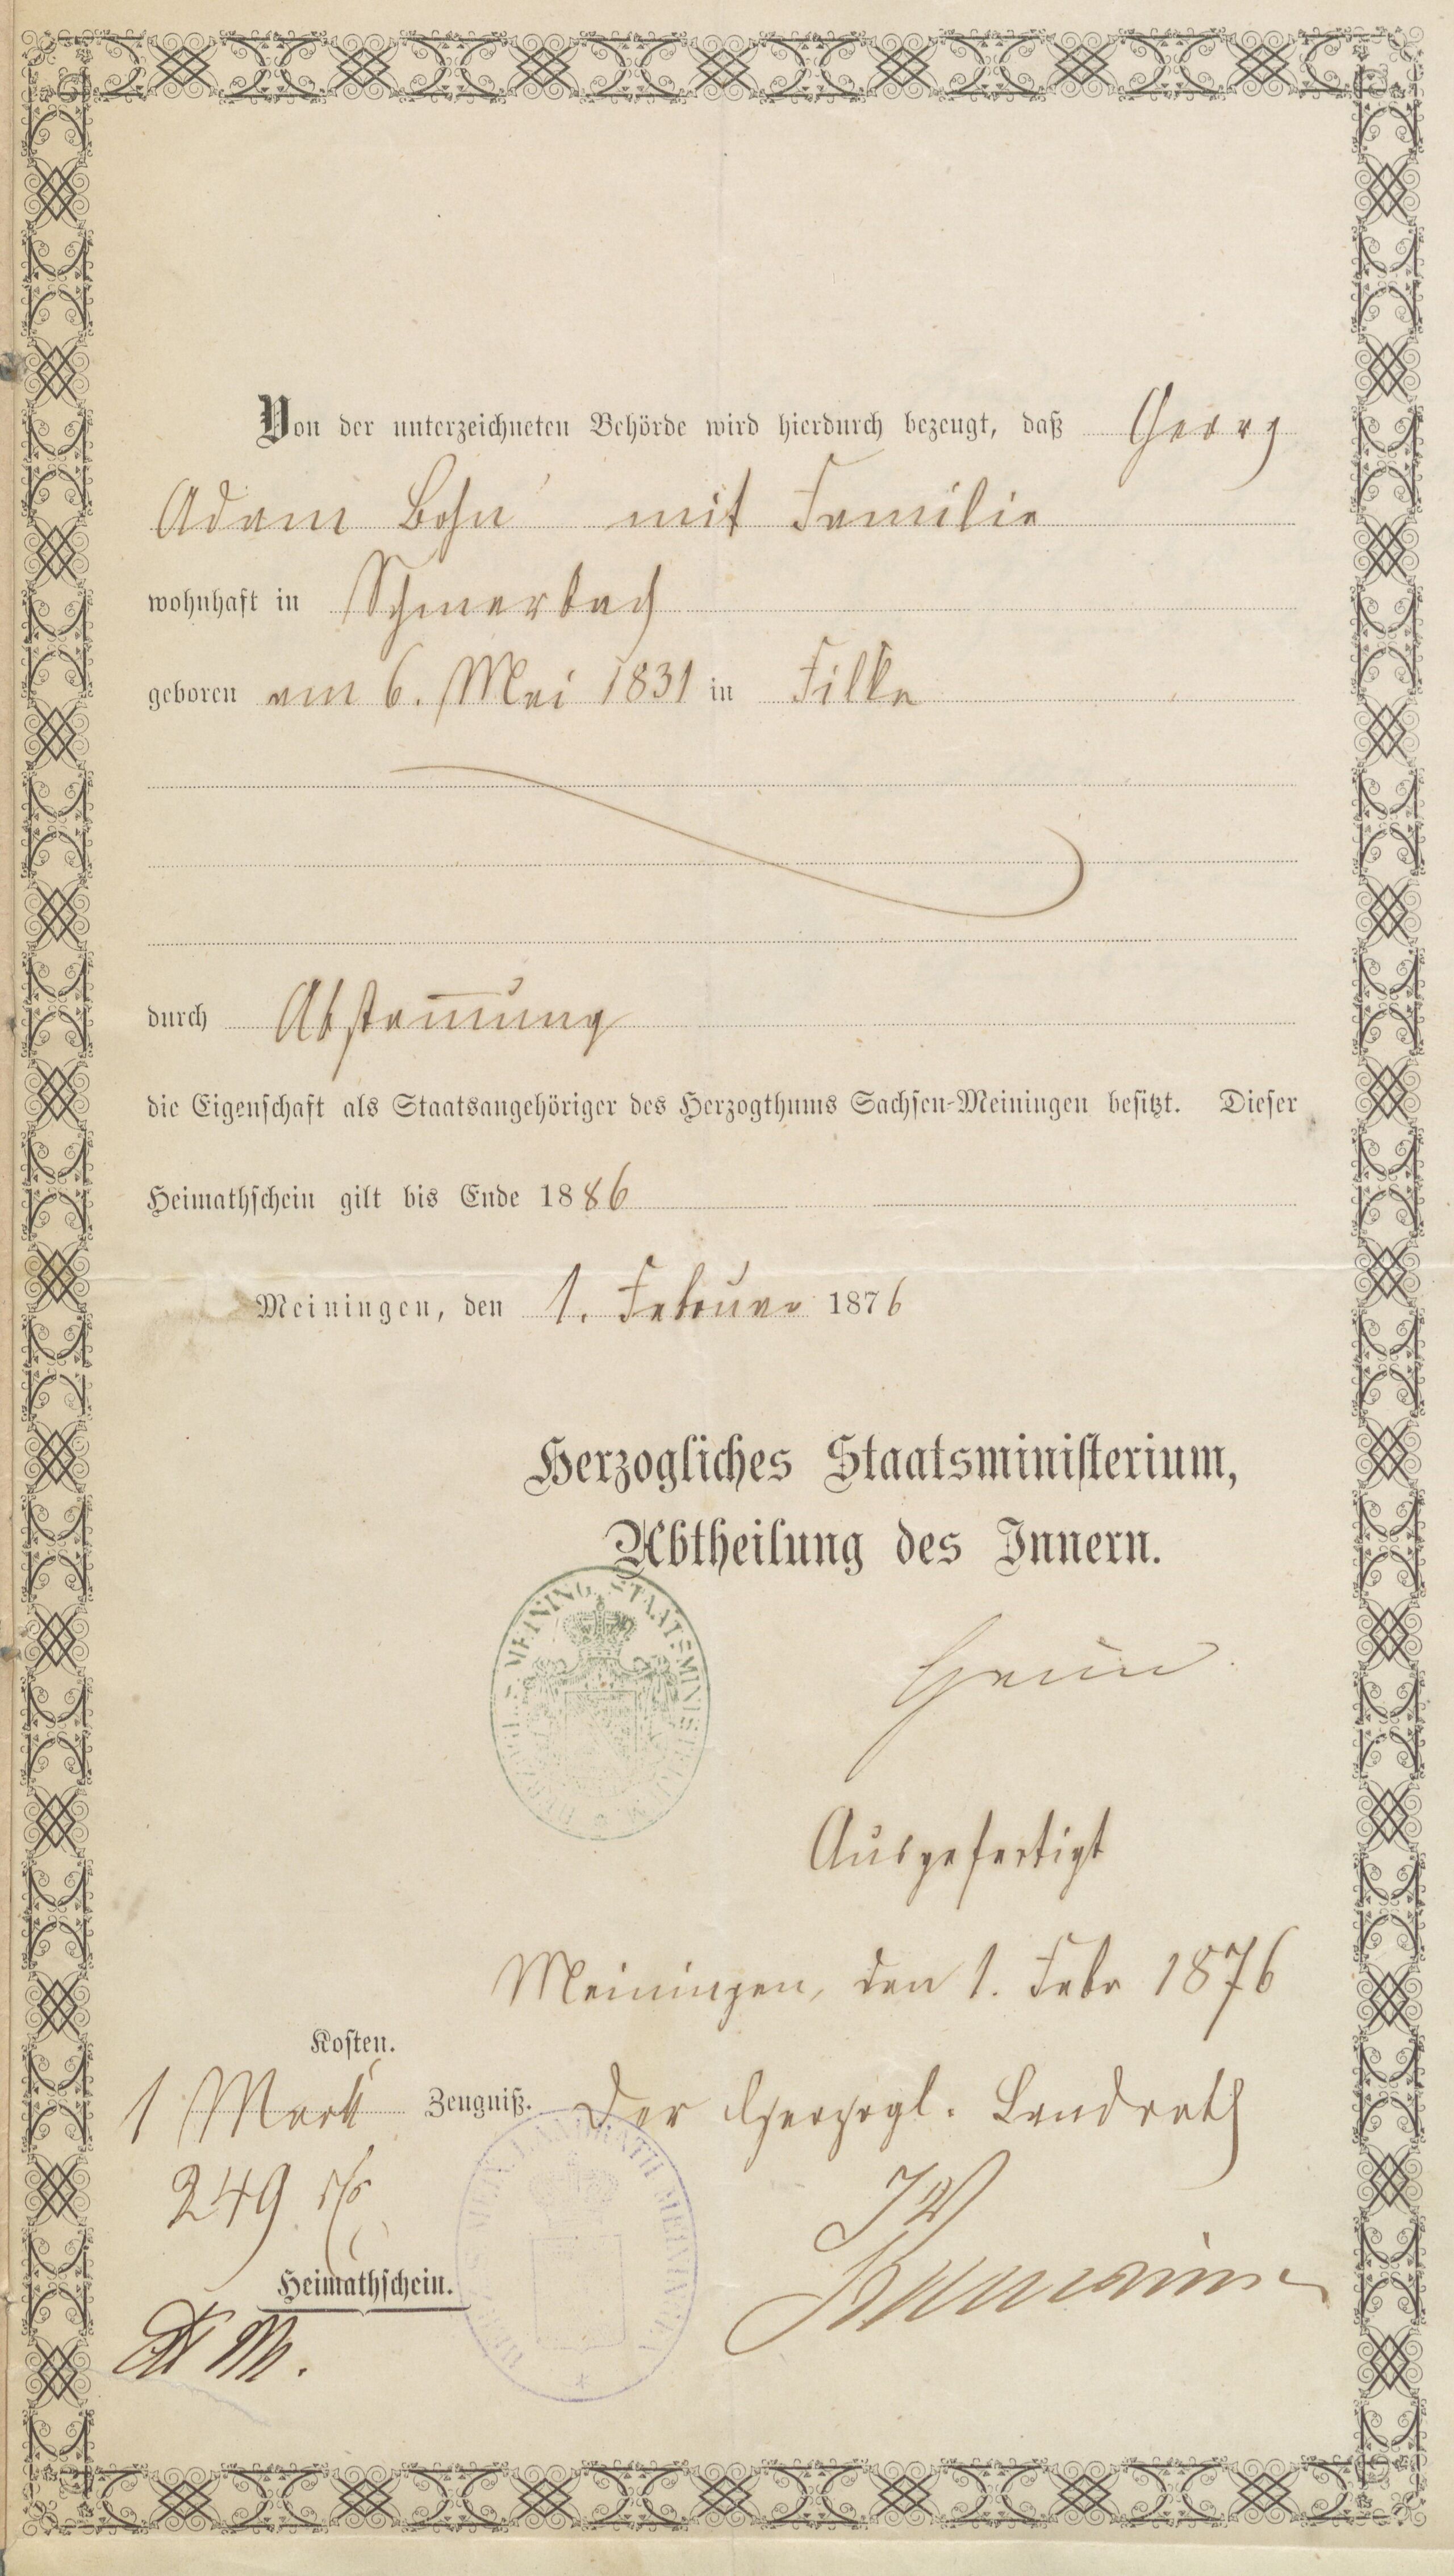 Von der unterzeichneten Behörde wird hierdurch bezeugt, daß Georg
Adam Bohn mit Familie
wohnhaft in Schmerbach
geboren am 6. Mai 1831 in Filke
durch Abstam̄ung
die Eigenschaft als Staatsangehöriger des Herzogthums Sachsen-Meiningen besitzt. Dieser
Heimathschein gilt bis Ende 1886
Meiningen, den 1. Februar 1876
Herzogliches Staatsministerium,
Abtheilung des Innern.
MEINING. STAATSMINISTERIUM
Ausgefertigt
Meiningen, den 1. Febr 1876
Kosten.
1 Mark Zeugniß.
Der Herzogl. Landrath
249
IV
LANDRATH MEININGEN
Heimathschein.